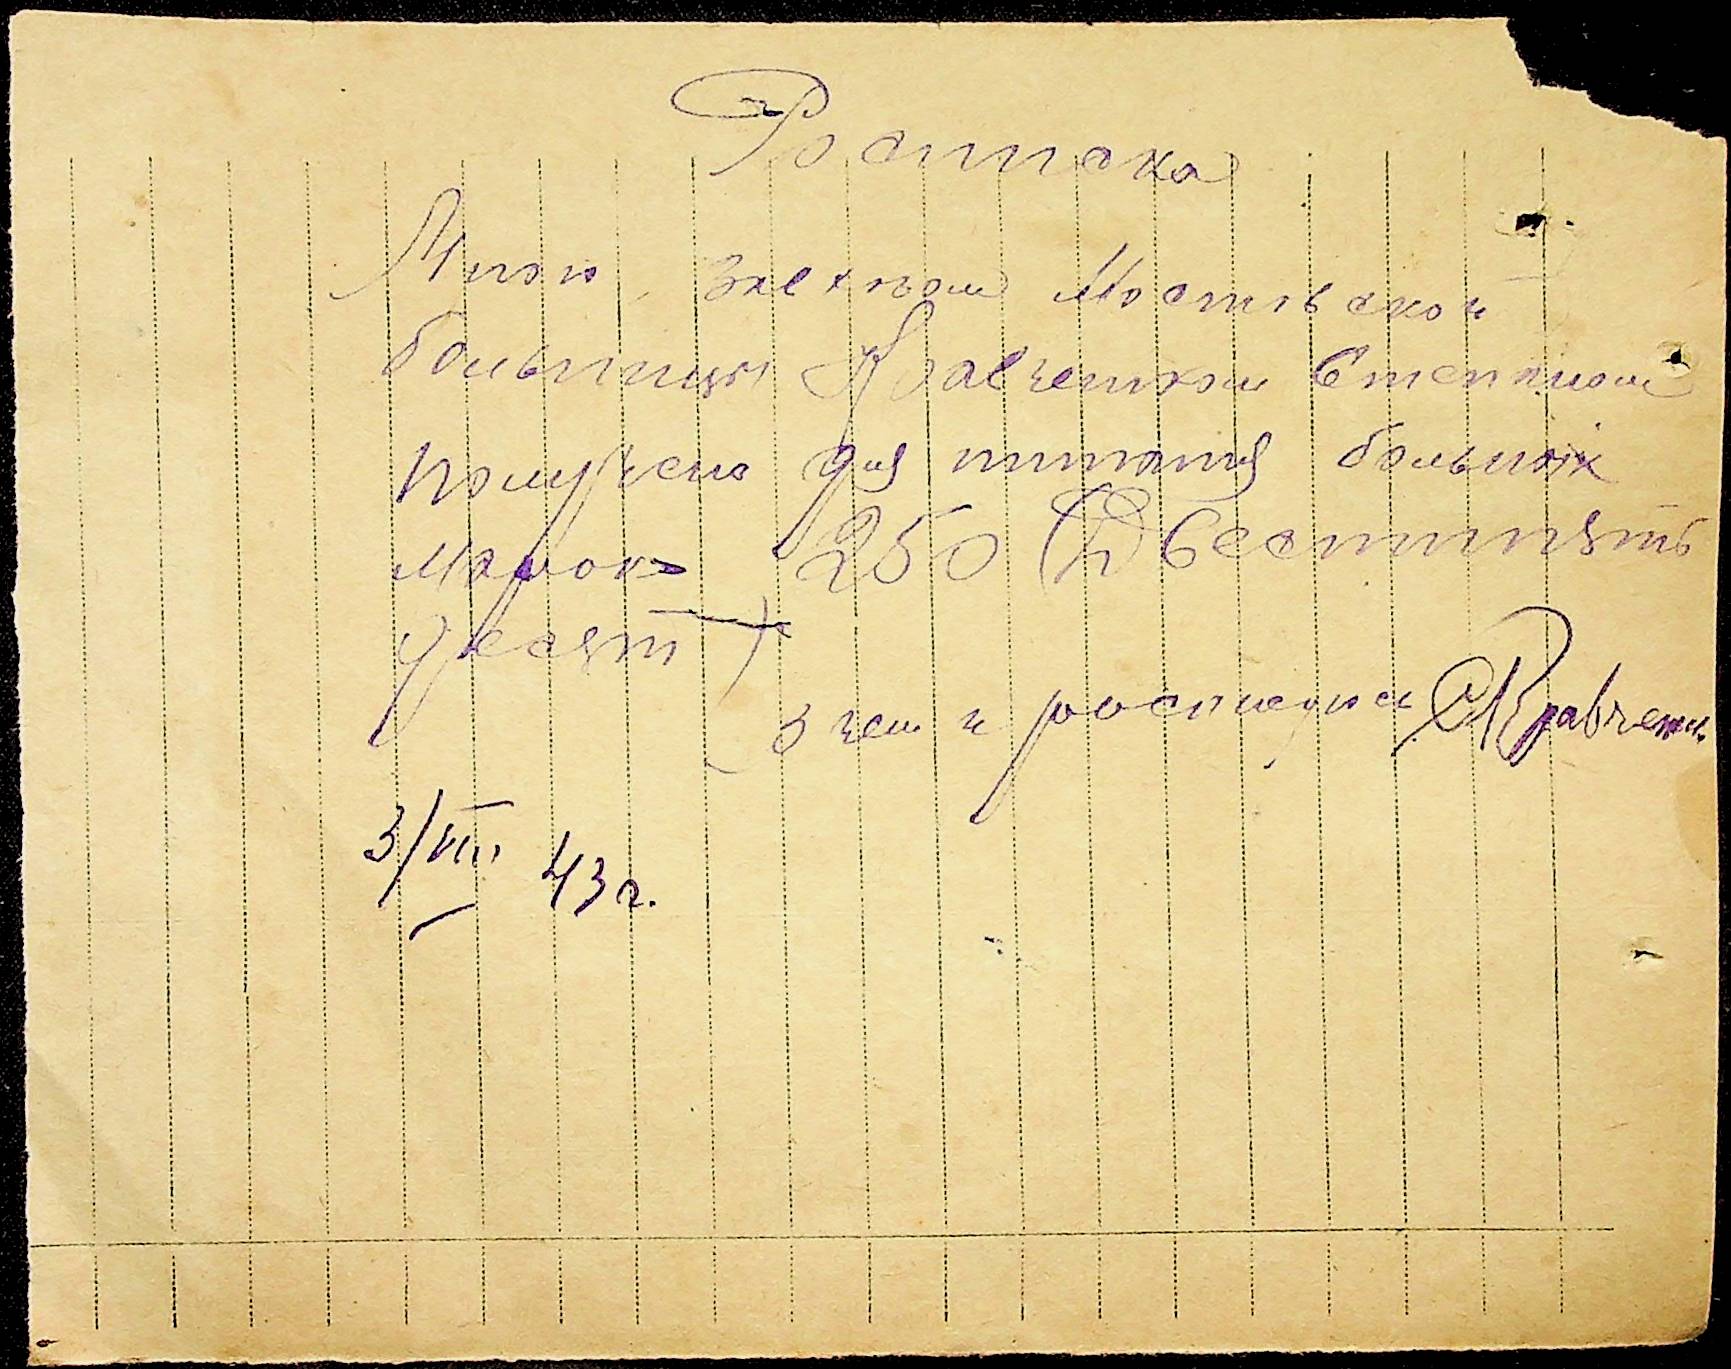 Росписка
Мною, завхозом Мостовской
больницы Кравченком Степаном
получено для питания больных
марок 250 (Двестипять
десят)
в чем и росписуюсь СКравченк
3/VIII 43 г.